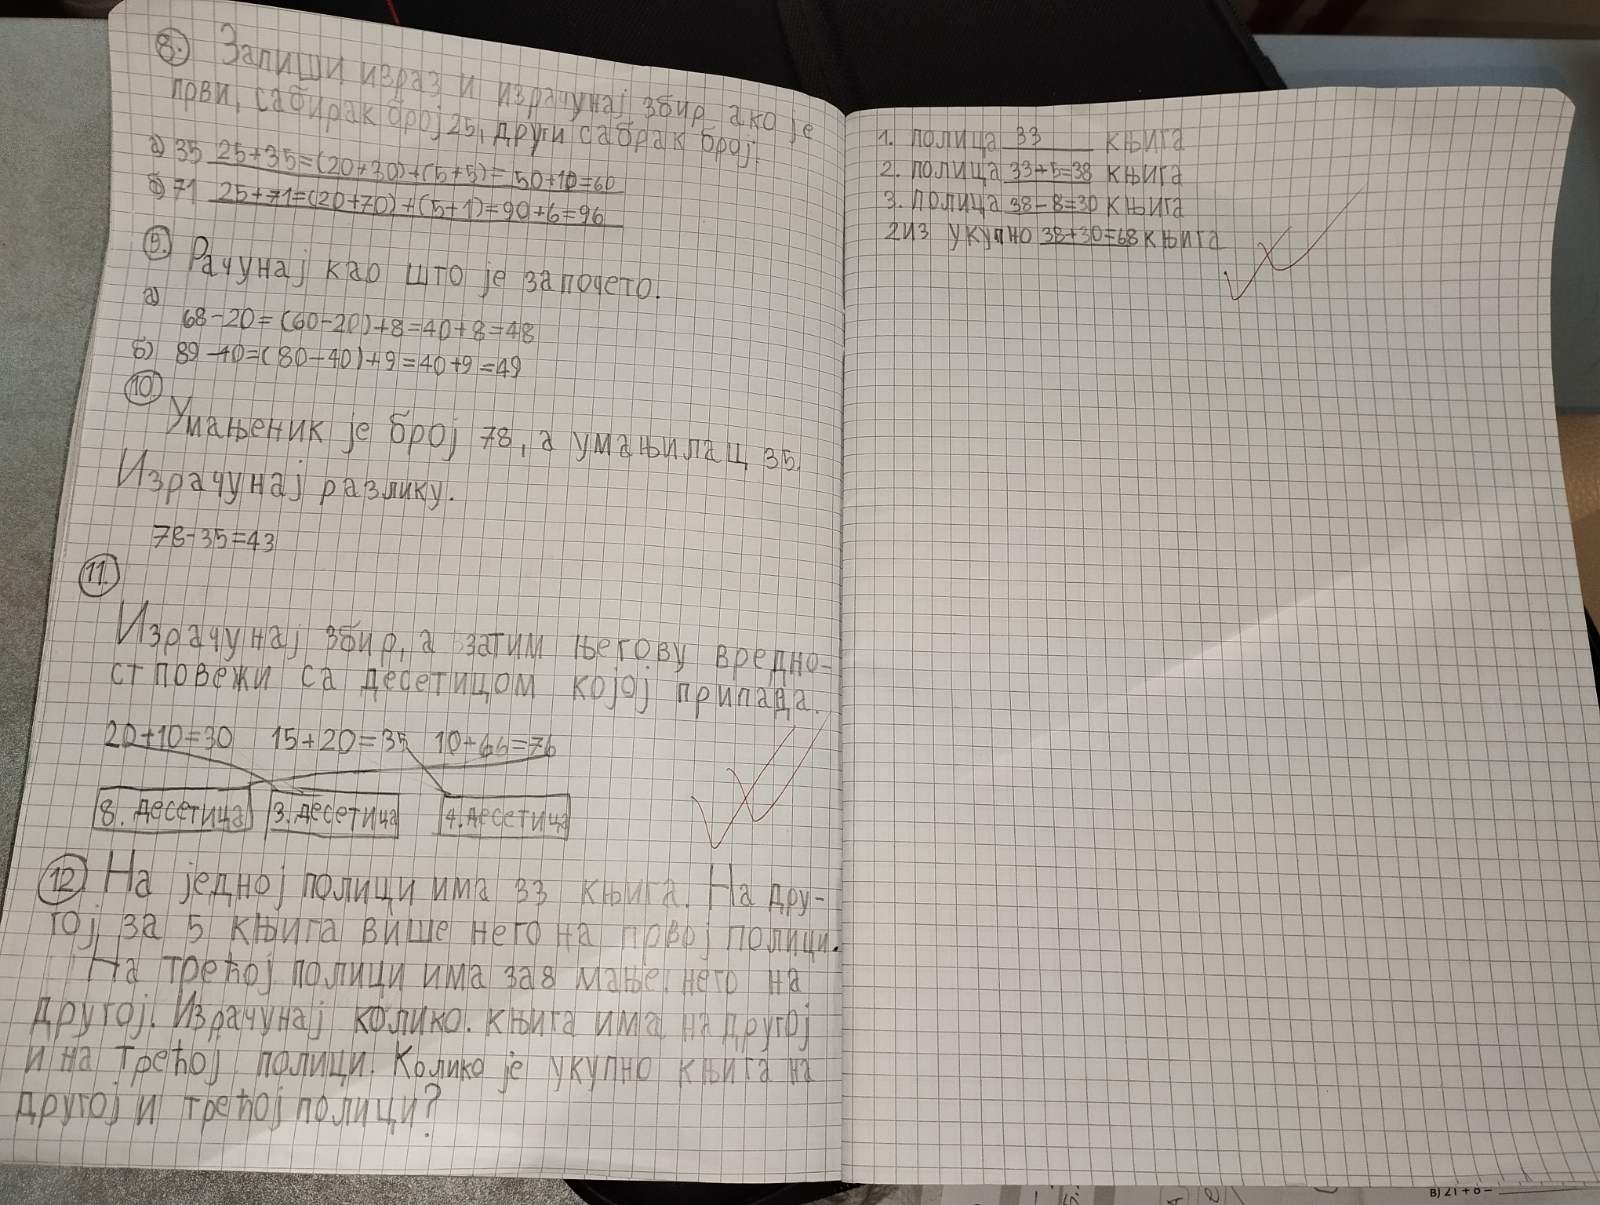 8. Запиши израз и израчунај збир ако је
први, сабирак број 25, други сабрак број:
а) 35 25+35=(20+30)+(5+5)=50+10=60
б) 71 25+71=(20+70)+(5+1)=90+6=96
9. Рачунај као што је започето.
а)
68-20=(60-20)+8=40+8=48
б) 89-40=(80-40)+9=40+9=49
10.
Умањеник је број 78, а умањилац 35.
Израчунај разлику.
78-35=43
11.
Израчунај збир, а затим његову вредно-
ст повежи са десетицом којој припада.
20+10=30 15+20=35 10+66=76
8. десетица 3. десетица 4. десетица
12. На једној полици има 33 књига. На дру-
гој за 5 књига више него на првој полици.
На трећој полици има за 8 мање него на
другој. Израчунај колико. књига има на другој
и на трећој полици. Колико је укупно књига на
другој и трећој полици?
1. полица 33 књига
2. полица 33+5=38 књига
3. полица 38-8=30 књига
2 из укупно 38+30=68 књига